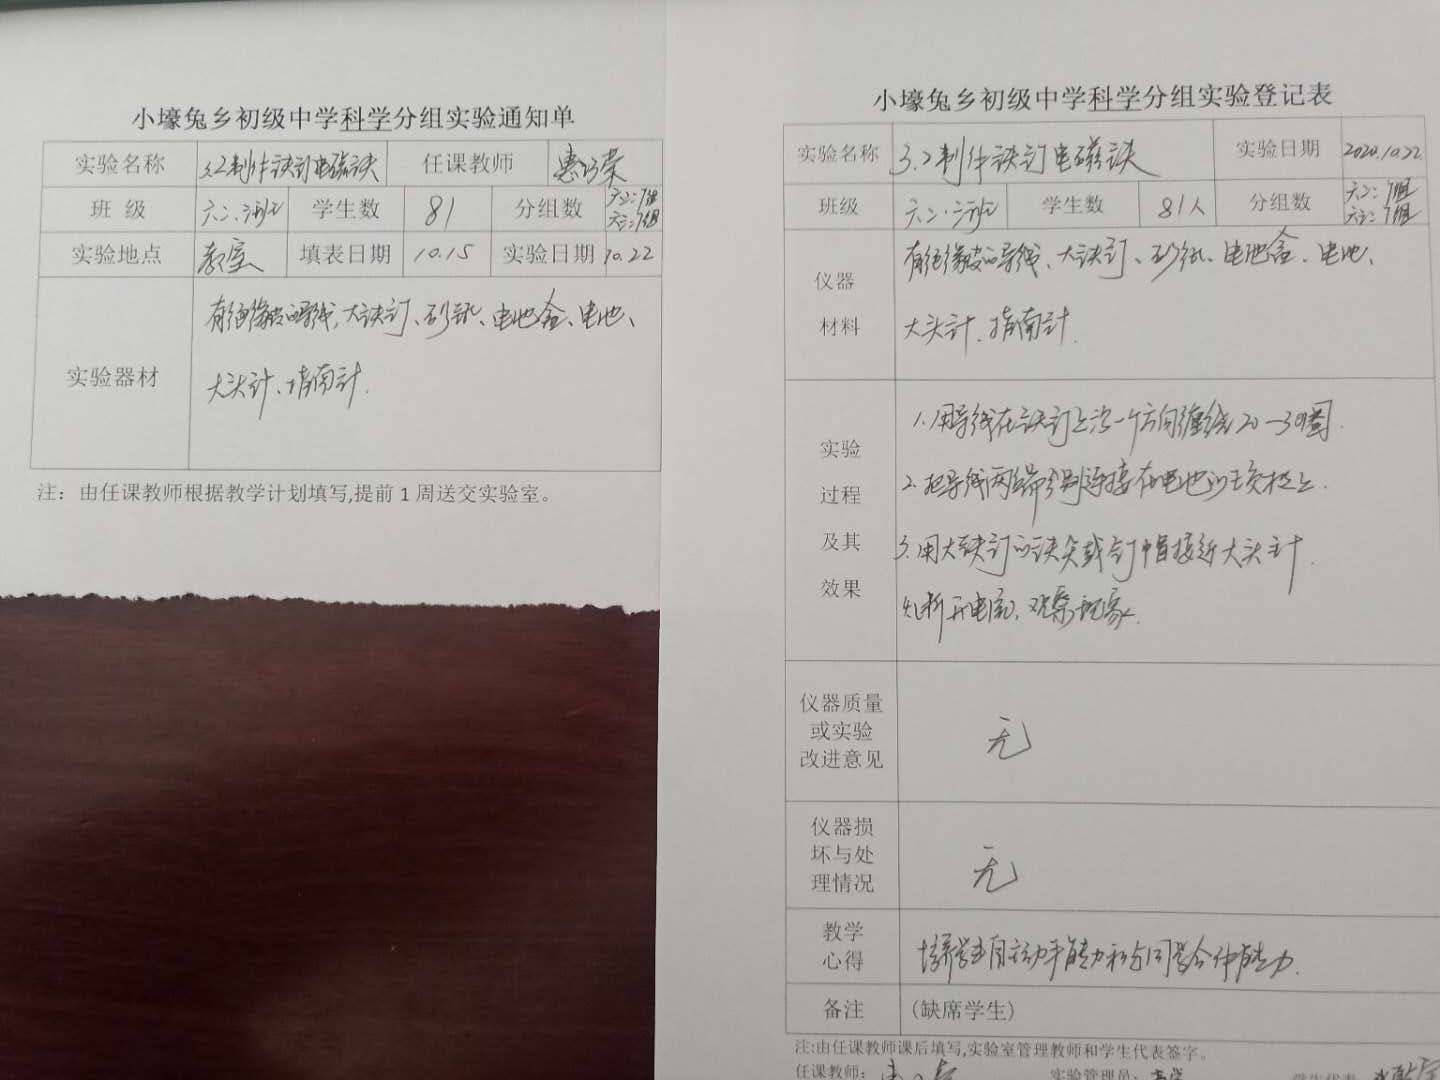 小壕兔乡初级中学科学分组实验通知单
实验名称 3.2制作铁钉电磁铁 任课教师
班 级 六二、三班 学生数 81 分组数 六二:7组
六三:7组
实验地点 教室 填表日期 10.15 实验日期 10.22
实验器材
有绝缘皮的导线、大铁钉、砂纸、电池盒、电池、
大头针、指南针.
注：由任课教师根据教学计划填写,提前1周送交实验室。
小壕兔乡初级中学科学分组实验登记表
实验名称 3.2制作铁钉电磁铁 实验日期 2020.10.22
班级 六二、三班 学生数 81人 分组数 六二:7组
六三:7组
仪器
材料
有绝缘皮的导线、大铁钉、砂纸、电池盒、电池、
大头针、指南针.
实验
过程
及其
效果
1.用导线在铁钉上沿一个方向缠绕20—30圈.
2.把导线两端分别连接在电池的正负极上.
3.用大铁钉的铁尖或钉帽接近大头针.
4.断开电流、观察现象.
仪器质量
或实验
改进意见
无
仪器损
坏与处
理情况
无
教学
心得
培养学生自主动手能力和与同学合作能力.
备注 (缺席学生)
注:由任课教师课后填写,实验室管理教师和学生代表签字。
任课教师: 实验管理员: 学生代表